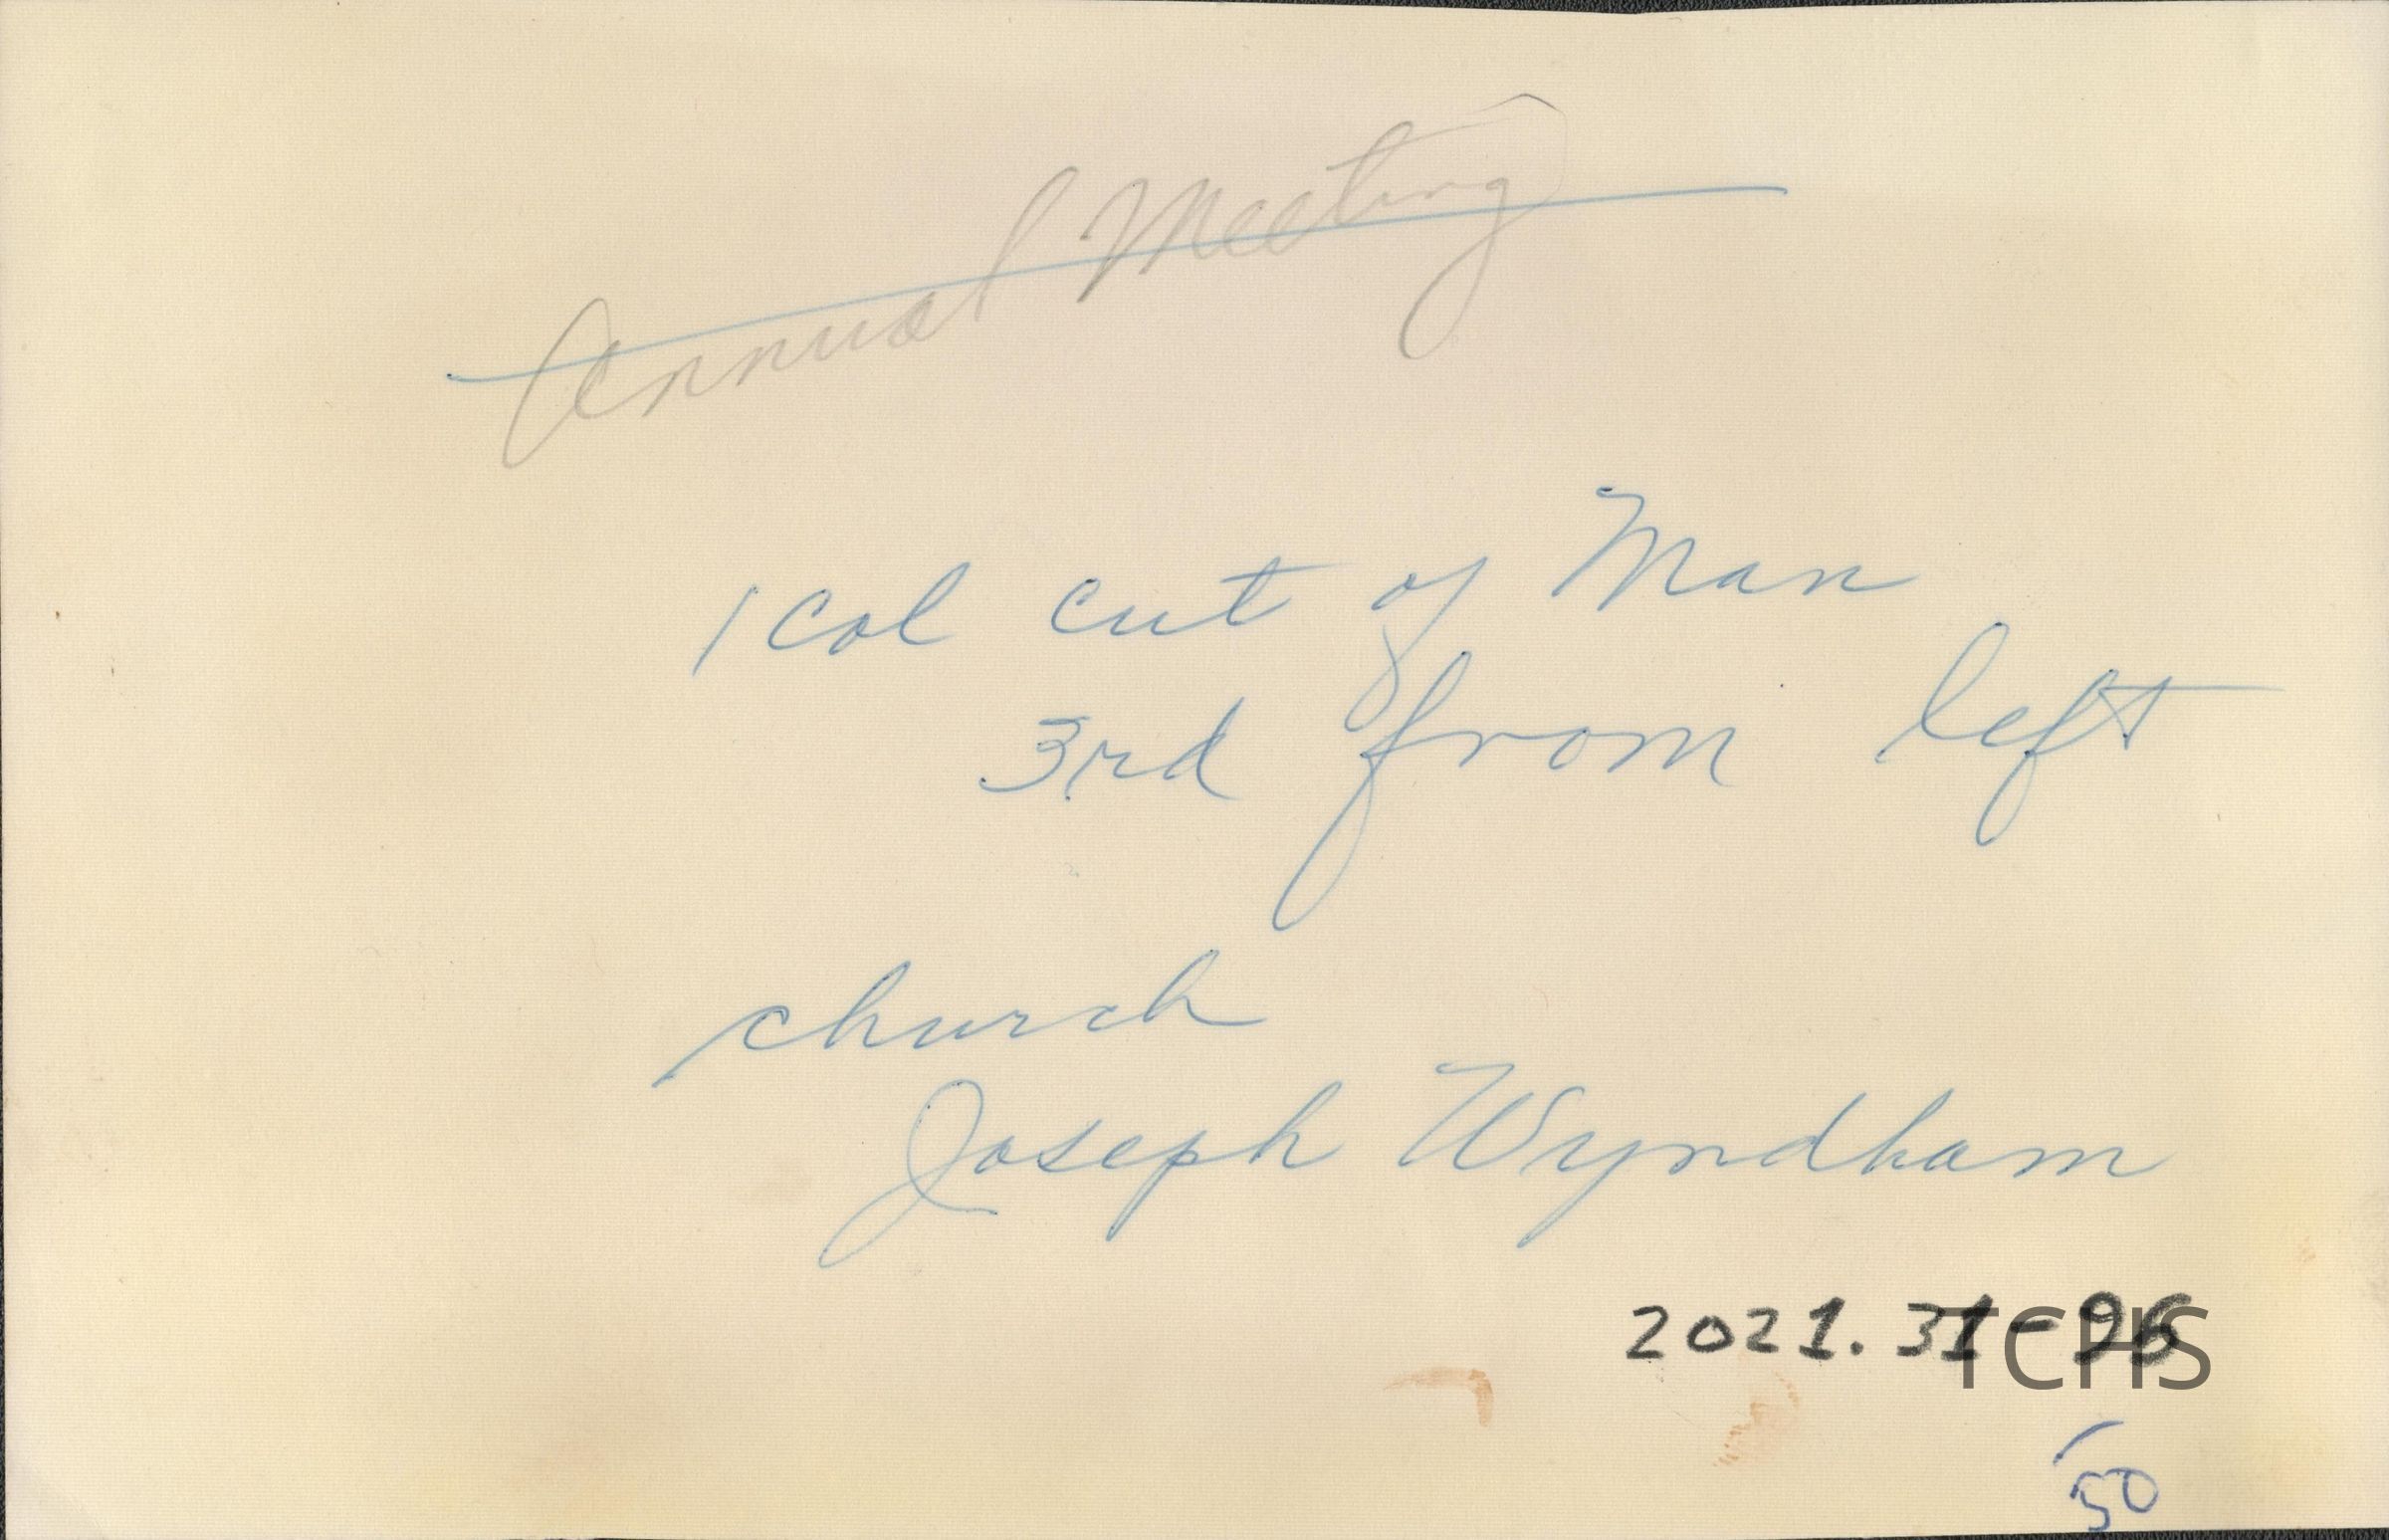 Annual Meeting
1 col cut of Man
3rd from left
church
Joseph Wyndham
2021.31-96
TCHS
50